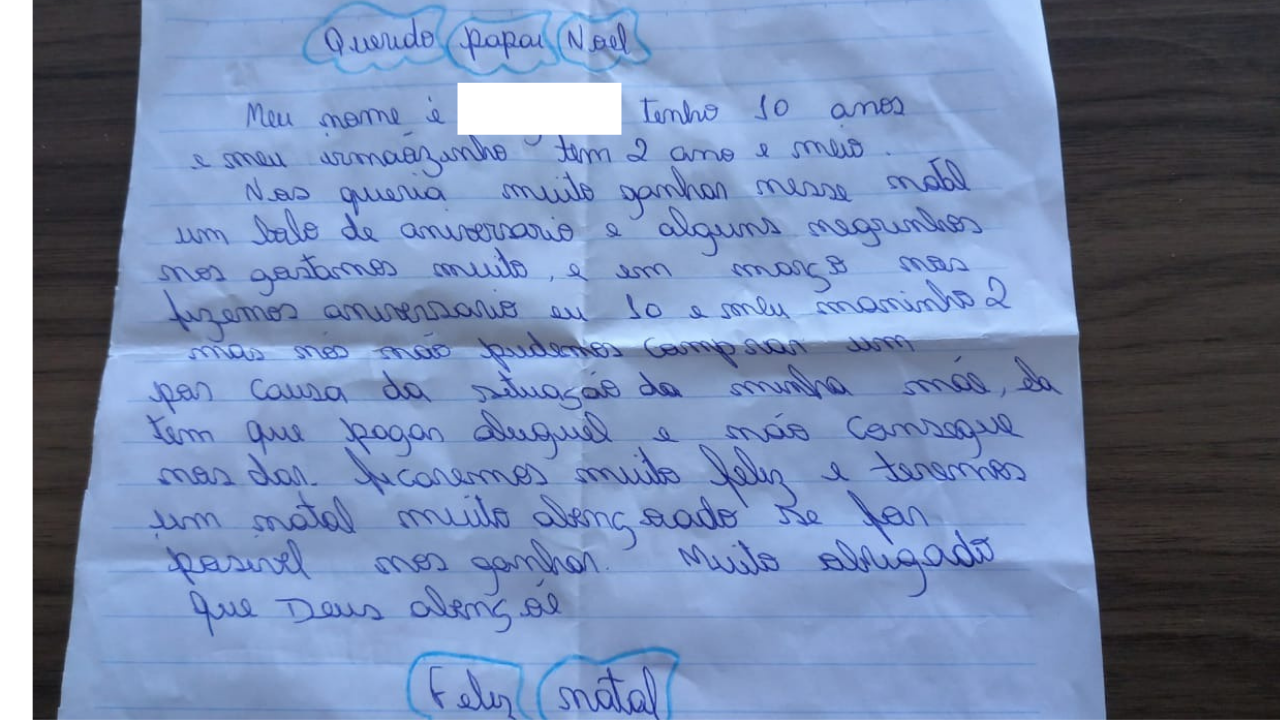 Querido papai Noel
Meu nome é tenho 10 anos
e meu irmãozinho tem 2 ano e meio.
Nos queria muito ganhar nesse natal
um bolo de aniversario e alguns negrinhos
nos gostamos muito, e em março nos
fizemos aniversario eu 10 e meu maninho 2
mas nós não pudemos comprar um
por causa da situação da minha mãe, ela
tem que pagar aluguel e não consegue
nos dar. ficaremos muito feliz e teremos
um natal muito abençoado se for
possivel nos ganhar. Muito obrigado
que Deus abençoe
Feliz natal